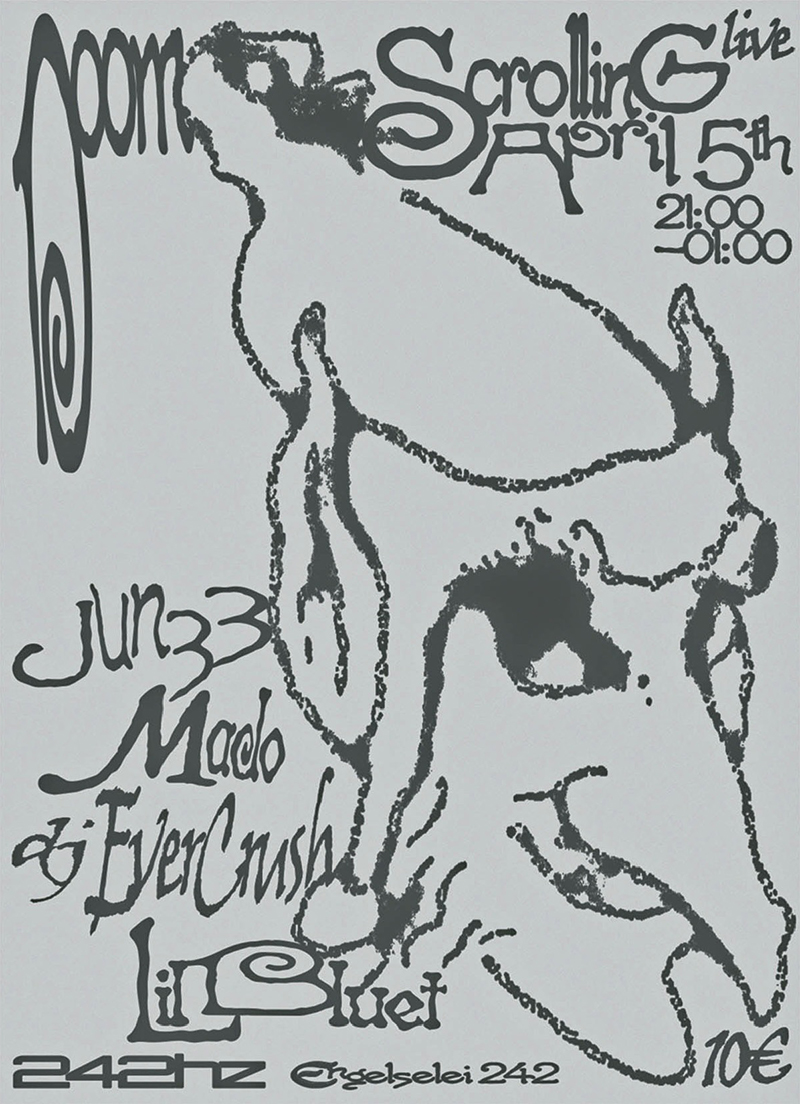 poom
Scrolling live
April 5th
21:00
-01:00
Jun33
Mado
dj EverCrush
Lil Bluet
242hz Engelselei 242
10€